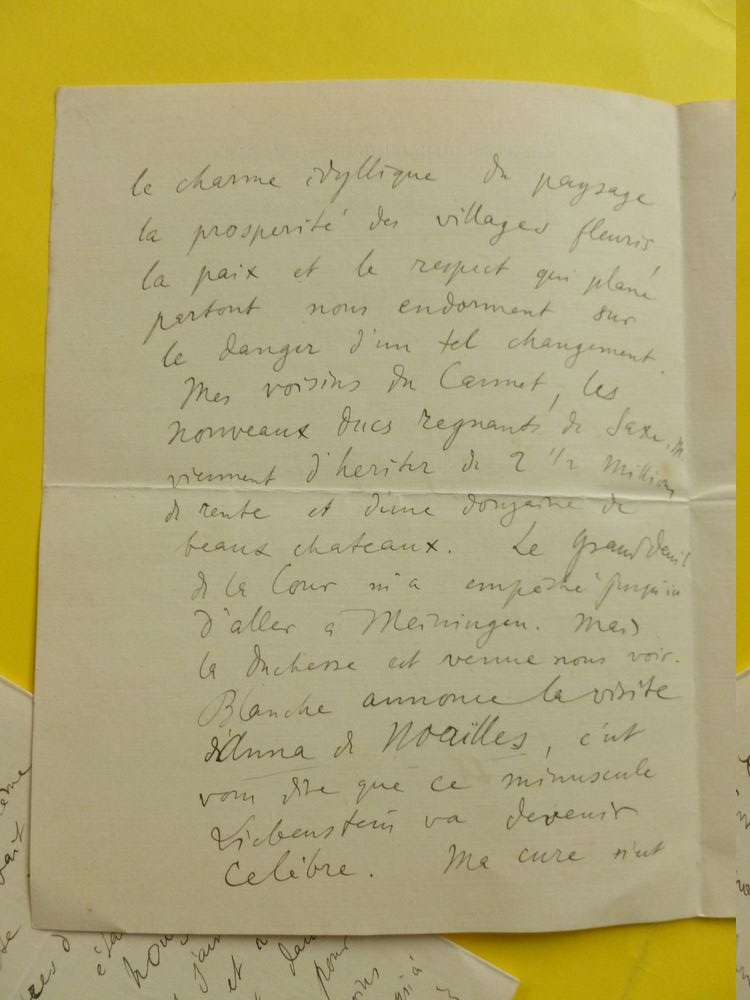 le charme idyllique du paysage
la prosperité des villages fleuris
la paix et le respect qui plane
partout nous endorment sur
le danger d'un tel changement
Mes voisins du Cannet, les
nouveaux ducs regnants de Saxe, M.
viennent d'heriter de 2 1/2 millions
de rente et d'une douzaine de
beaux chateaux. Le grand deuil
de la Cour m'a empêché jusqu'ici
d'aller a Meiningen. Mais
la duchesse est venue nous voir.
Blanche annonce la visite
d'Anna de Noaïlles, c'est
vous dire que ce minuscule
Liebenstein va devenir
celèbre. Ma cure s'est